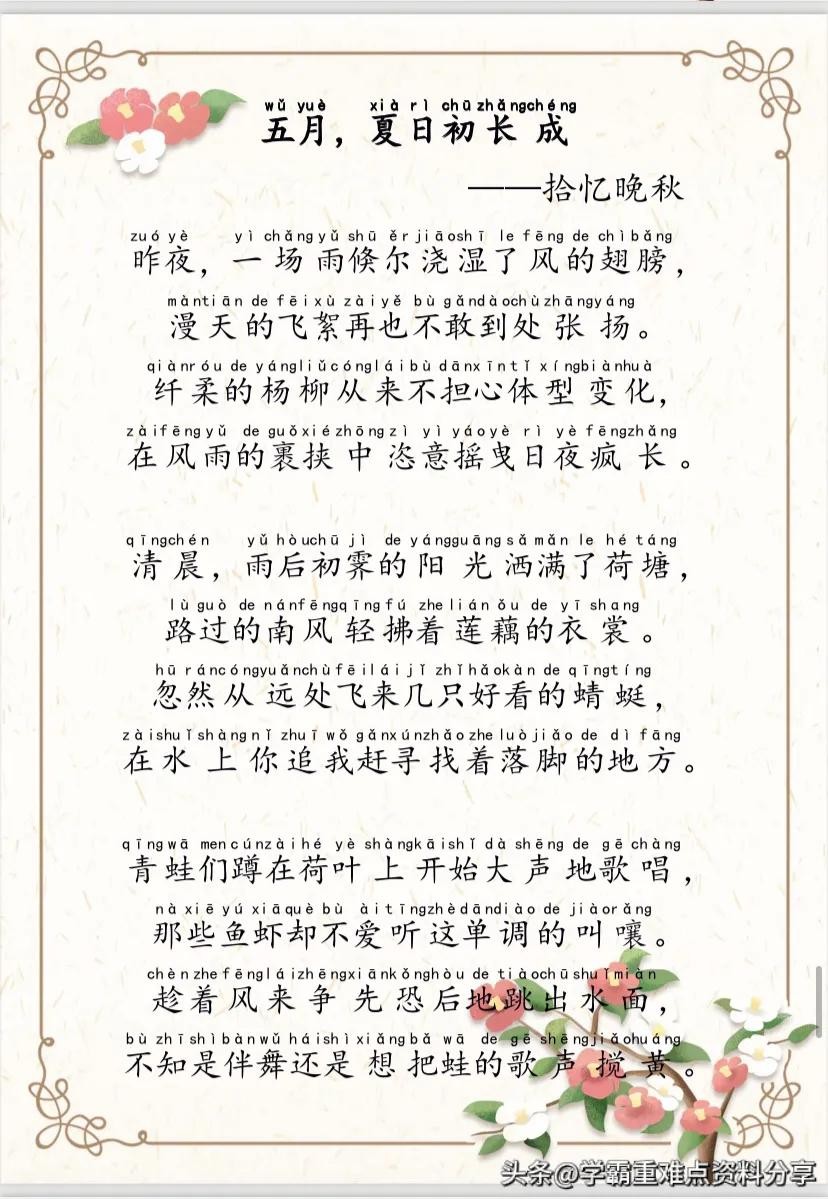 wǔ yuè xià rì chū zhǎng chéng
五月，夏日初长成
——拾忆晚秋
zuó yè yì chǎng yǔ shū ěr jiāo shī le fēng de chì bǎng
昨夜，一场雨倏尔浇湿了风的翅膀，
màn tiān de fēi xù zài yě bù gǎn dào chù zhāng yáng
漫天的飞絮再也不敢到处张扬。
qiàn róu de yáng liǔ cóng lái bù dān xīn tǐ xíng biàn huà
纤柔的杨柳从来不担心体型变化，
zài fēng yǔ de guǒ xié zhōng zì yì yáo yè rì yè fēng zhǎng
在风雨的裹挟中恣意摇曳日夜疯长。
qīng chén yǔ hòu chū jì de yáng guāng sǎ mǎn le hé táng
清晨，雨后初霁的阳光洒满了荷塘，
lù guò de nán fēng qīng fú zhe lián ǒu de yī shang
路过的南风轻拂着莲藕的衣裳。
hū rán cóng yuǎn chù fēi lái jǐ zhǐ hǎo kàn de qīng tíng
忽然从远处飞来几只好看的蜻蜓，
zài shuǐ shàng nǐ zhuī wǒ gǎn xún zhǎo zhe luò jiǎo de dì fāng
在水上你追我赶寻找着落脚的地方。
qīng wā men cún zài hé yè shàng kāi shǐ dà shēng de gē chàng
青蛙们蹲在荷叶上开始大声地歌唱，
nà xiē yú xiā què bù ài tīng zhè dān diào de jiào rǎng
那些鱼虾却不爱听这单调的叫嚷。
chèn zhe fēng lái zhēng xiān kǒng hòu de tiào chū shuǐ miàn
趁着风来争先恐后地跳出水面，
bù zhī shì bàn wǔ hái shì xiǎng bǎ wā de gē shēng jiǎo huáng
不知是伴舞还是想把蛙的歌声搅黄。
头条@学霸重难点资料分享